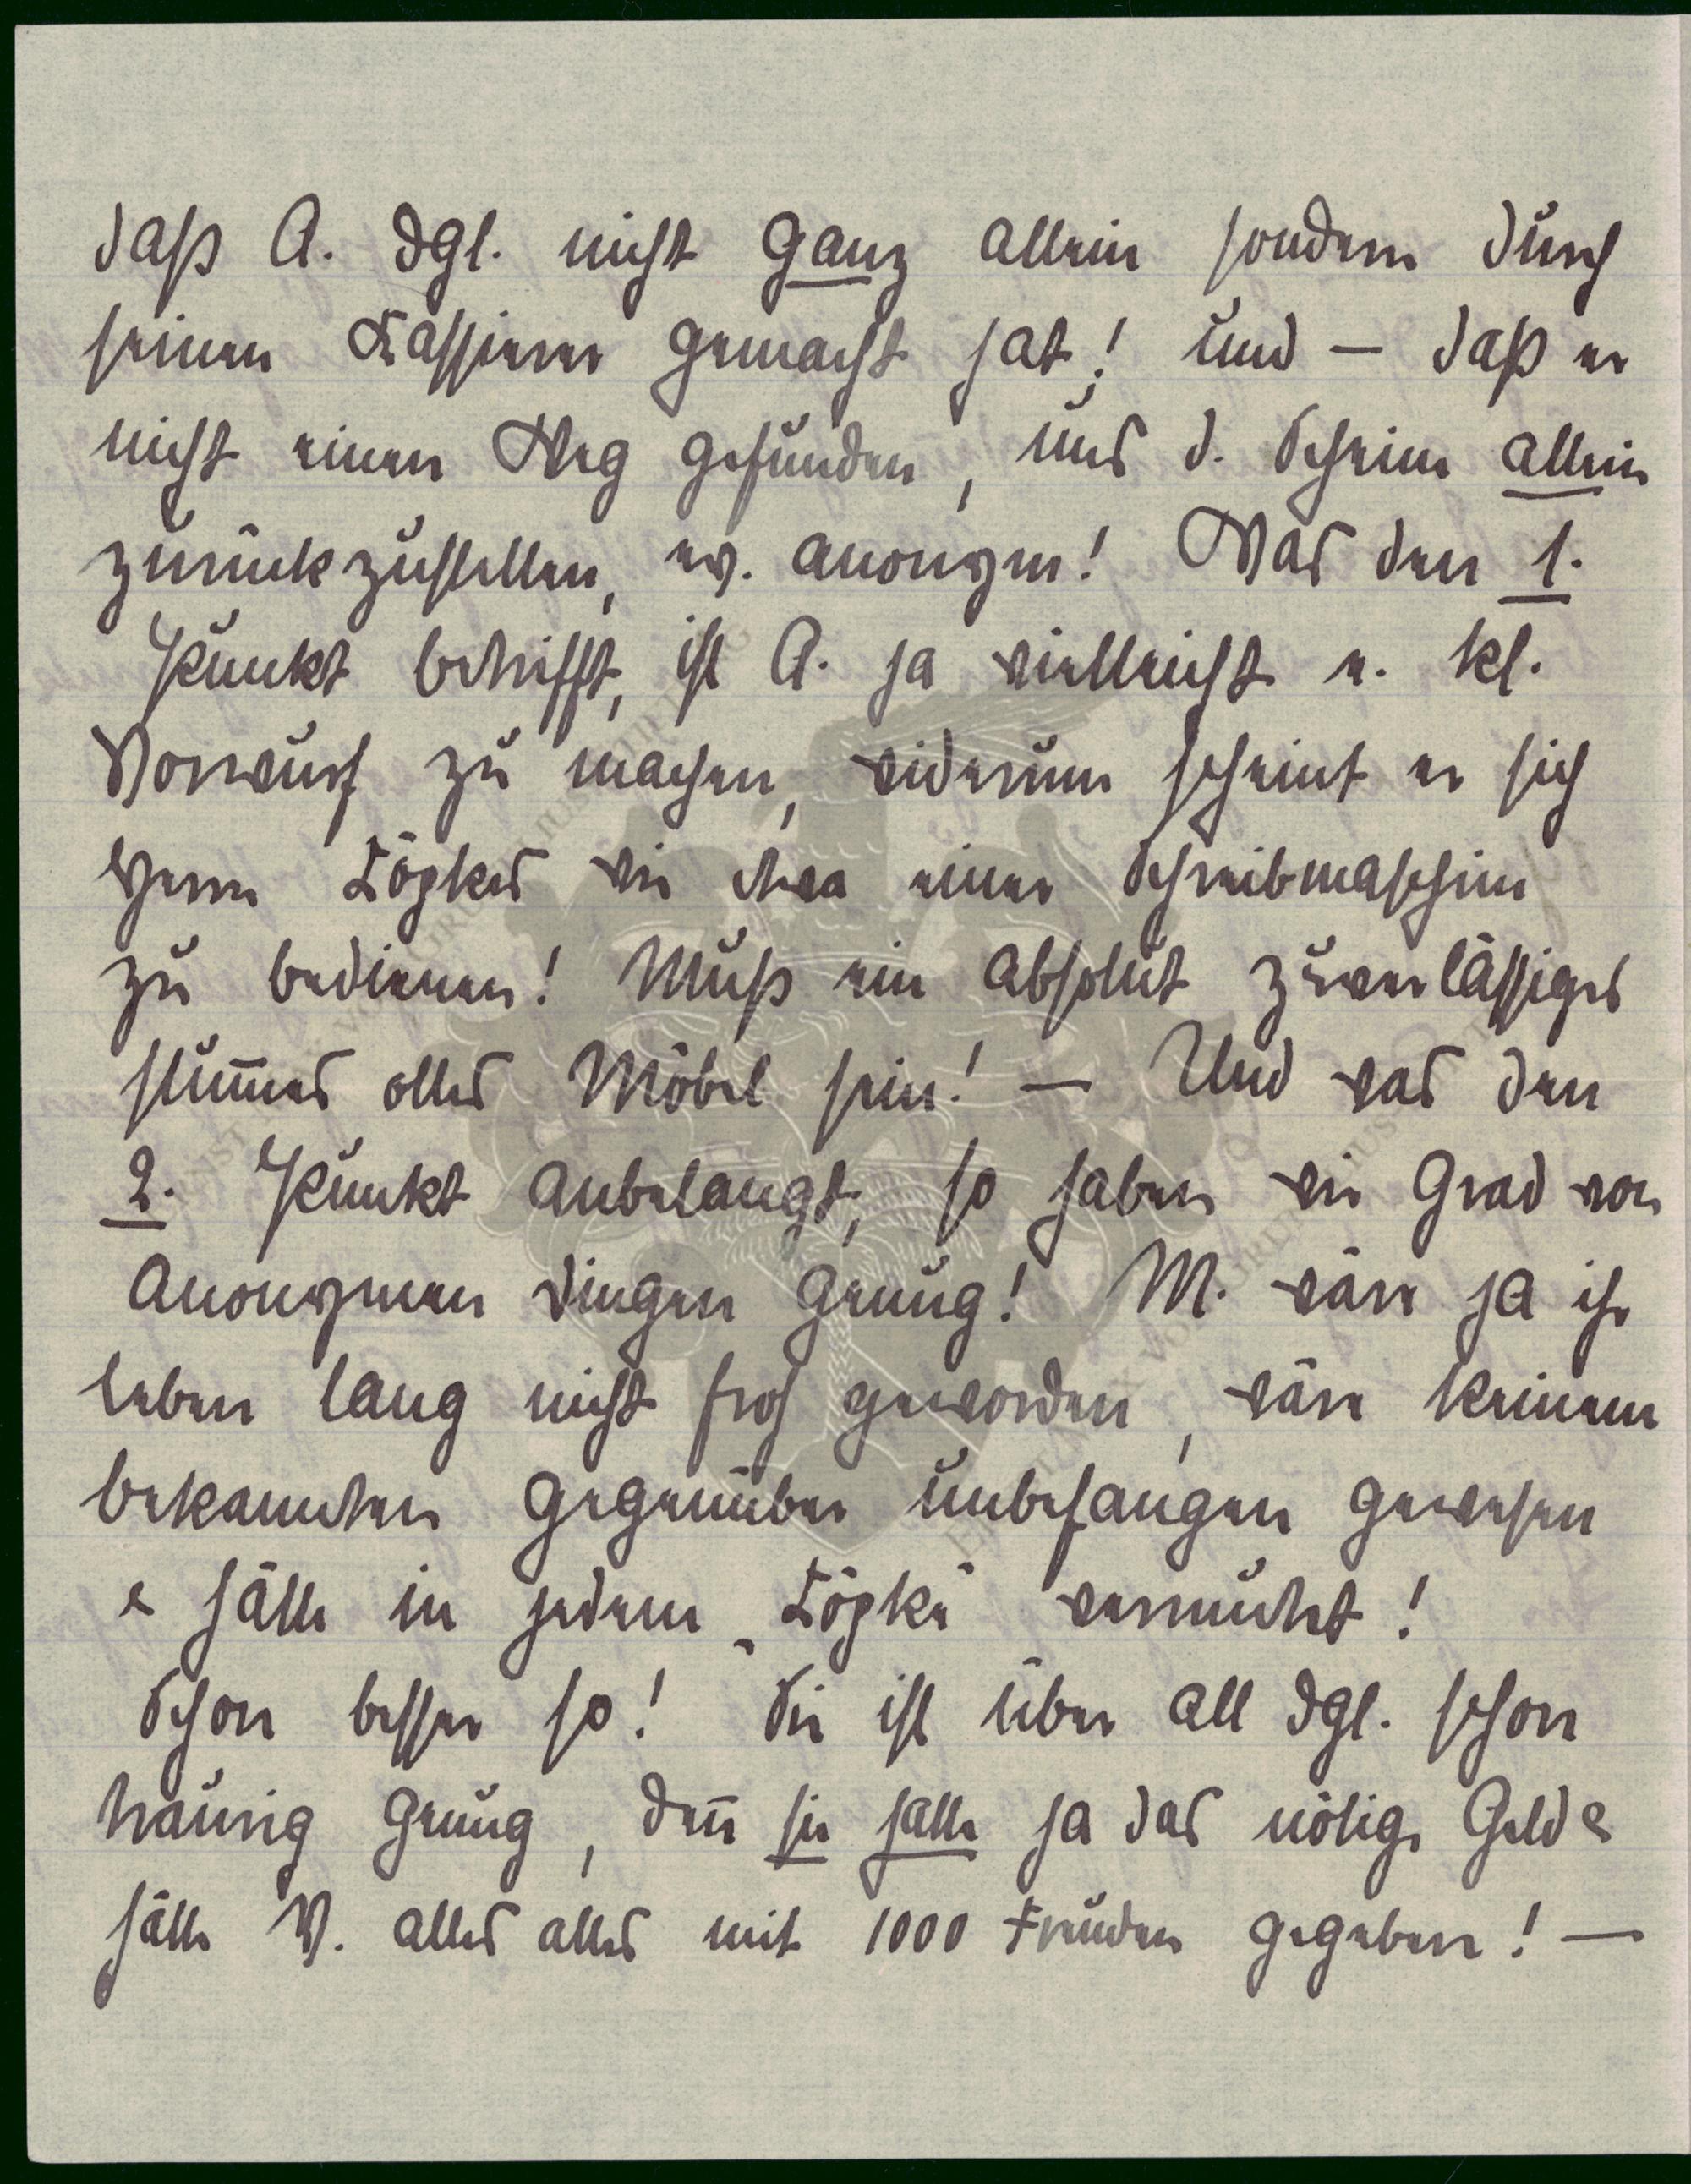 daß A. dgl. nicht ganz allein sondern durch
seinen Kassierer gemacht hat! Und — daß er
nicht einen Weg gefunden, uns d. Scheine allein
zurückzustellen, ev. anonym! Was den 1.
Punkt betrifft, ist A. ja vielleicht e. kl.
Vorwurf zu machen, widerum scheint er sich
Herrn Töpkes wie etwa einer Schreibmaschine
zu bedienen! Muß ein absolut zuverlässiges
stum̄es olles Möbel sein! — Und was den
2. Punkt anbelangt, so haben wir Grad von
Anonymen Dingen genug! M. wäre ja ihr
Leben lang nicht froh geworden, wäre keinem
bekannten gegenüber unbefangen gewesen
& hätte in jedem „Töpke" vermutet!
Schon besser so! Sie ist über all dgl. schon
traurig genug, den̄ sie hatte ja das nötige Geld &
hätte V. alles alles mit 1000 Freuden gegeben! —